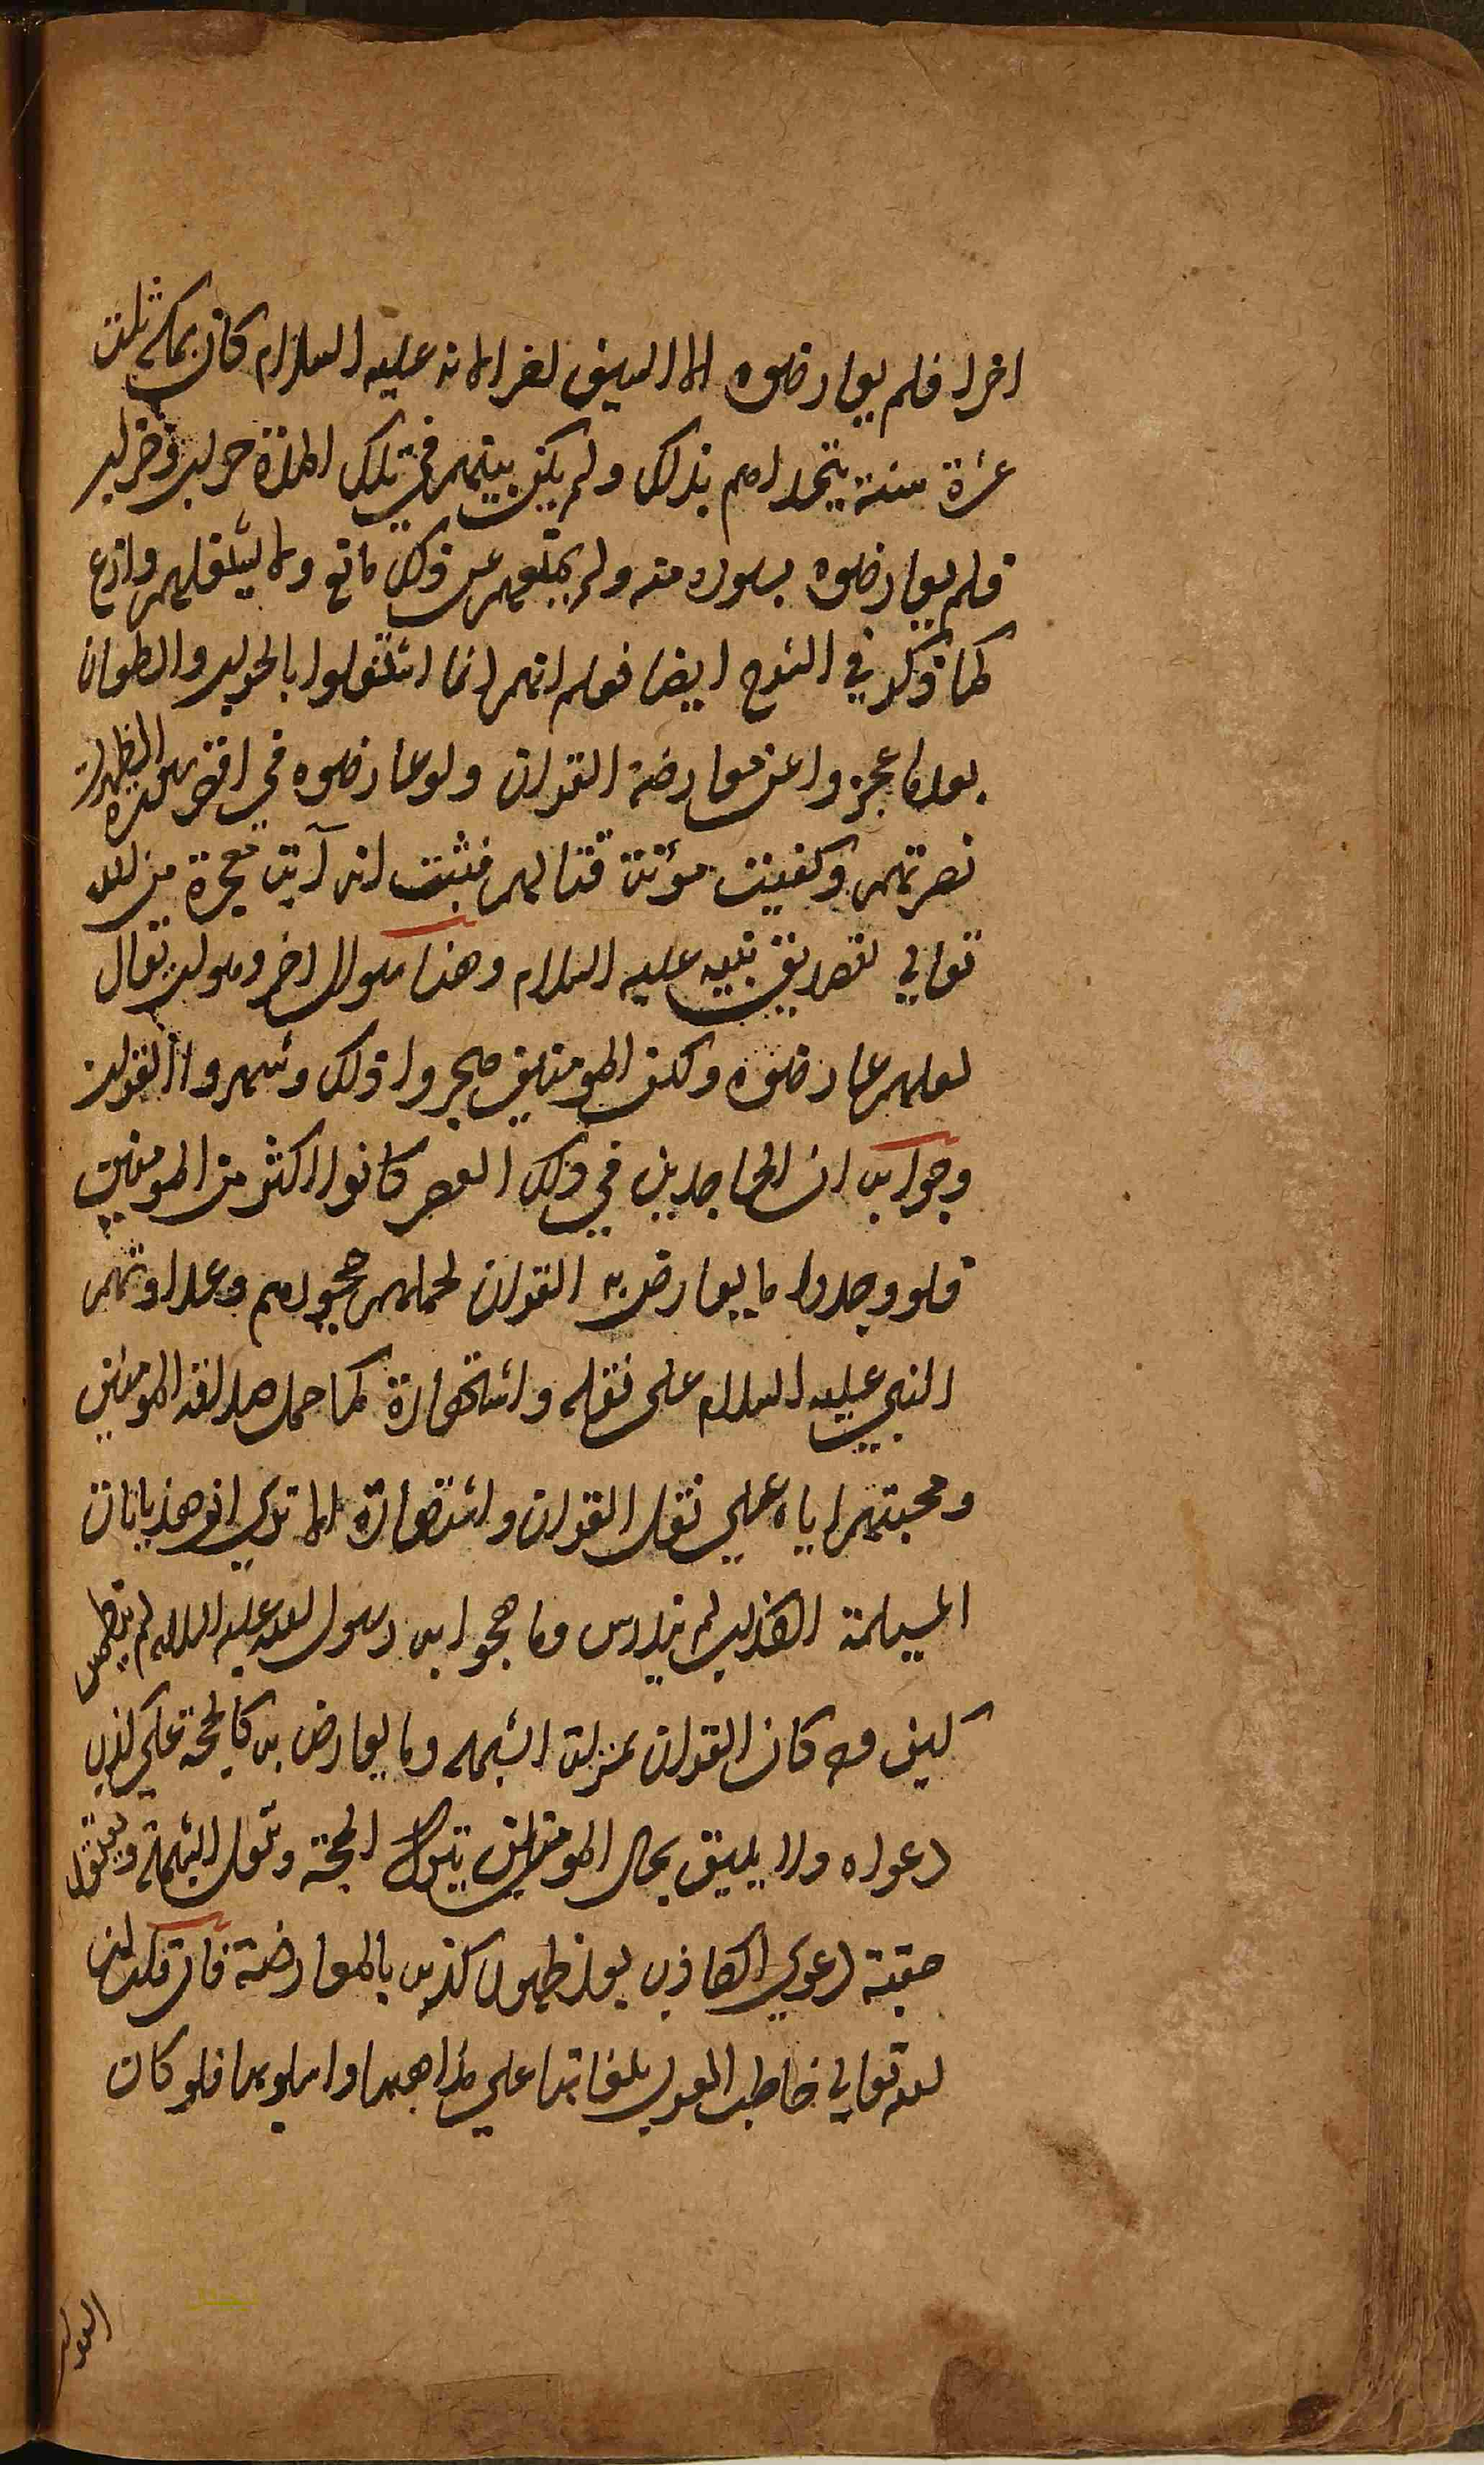 اخرا فلم يعارضوه الا السيف لغرا لانه عليه السلام كان بمكة ثلث
عشرة سنة يتحداهم بذلك ولم يكن بينهم في تلك المدة حرب وضرب
فلم يعارضوه بسوره منه ولم يمنعهم عن ذلك مانع ولا يشغلهم وازع
كما ذكر في الشرح ايضا فعلم انهم انما اشتغلوا بالحرب والطعان
بعد ما عجزوا عن معارضة القران ولو عارضوه في اقصر سورة لظهرت
نصرتهم وكفيت مؤنة قتالهم فثبت انه آية معجزة من الله
تعالي لتصديق نبيه عليه السلام وهنا سوال اخر وهو ان يقال
لعلهم عارضوه ولكن المومنين هجروا ذلك وشهروا القران
وجوابه ان الجاحدين في ذلك العصر كانوا اكثر من المومنين
فلو وجدوا ما يعارض به القران لحملهم جحودهم وعداوتهم
النبي عليه السلام على نقله واشتهاره كما حمل صداقة المومنين
ومحبتهم اياه علي نقل القران واشتهاره الا تري ان هذيانات
المسيلمة الكذاب لم تندرس وما هجوا به رسول الله عليه السلام لم ينطمس
كيف وقد كان القران بمنزلة الشبهة وما يعارض به كالحجة علي كذب
دعواه ولا يليق بحال المومنين ترك الحجة ونقل الشبهة
حقية دعوي الكاذب بعد ظهور كذبه بالمعارضة فان قلت ان
الله تعالي خاطب العرب بلغاتها علي مذاهبها واسلوبها فلو كان
العرب